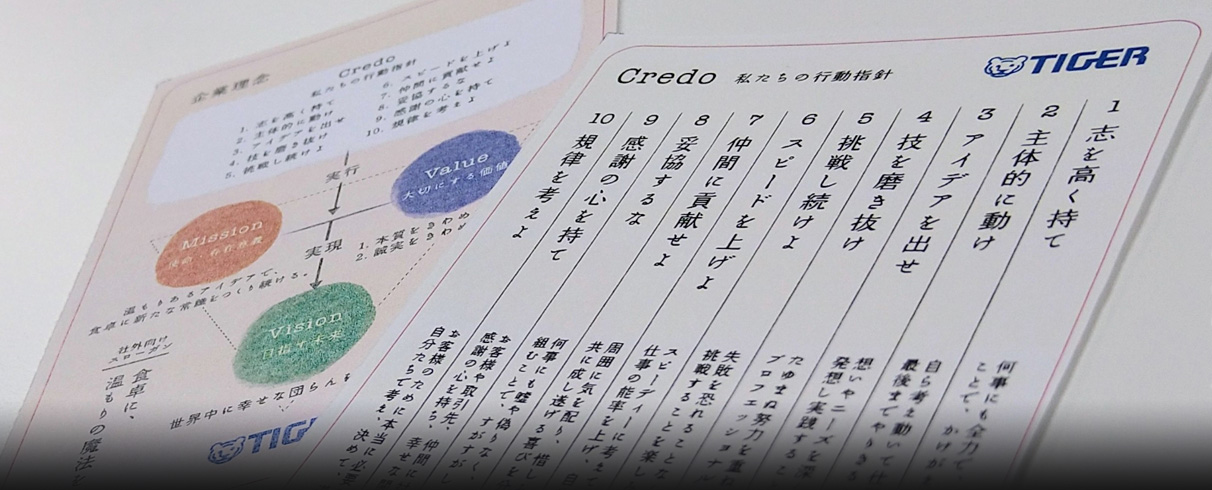 企業理念
Credo
私たちの行動指針
1. 志を高く持て
2. 主体的に動け
3. アイデアを出せ
4. 技を磨き抜け
5. 挑戦し続けよ
6. スピードを上げよ
7. 仲間に貢献せよ
8. 妥協するな
9. 感謝の心を持て
10. 規律を考えよ
実行
Value
大切にする価値
1. 本質をきわめ
2. 誠実をきわめ
Mission
使命・存在意義
実現
温もりあるアイデアで、
食卓に新たな常識をつくり続ける。
Vision
目指す未来
社外向け
スローガン
食卓に、
温もりの魔法を
世界中に幸せな団らんを
TIG
Credo 私たちの行動指針
TIGER
1 志を高く持て
何事にも全力で
ことで、かけが
2 主体的に動け
自ら考え動いて
最後までやりき
3 アイデアを出せ
想いやニーズを深
発想し実践する
4 技を磨き抜け
たゆまぬ努力を重
プロフェッショナル
5 挑戦し続けよ
失敗を恐れることな
挑戦することを楽し
6 スピードを上げよ
スピーディーに考え
仕事の能率を上げ、自
7 仲間に貢献せよ
周囲に気を配り、
共に成し遂げる喜びを
8 妥協するな
何事にも嘘や偽り
組むことで、すがすがし
9 感謝の心を持て
お客様や取引先、仲間に
感謝の心を持ち、幸せな
10 規律を考えよ
お客様のために本当に必要
自分たちで考え、決めて、